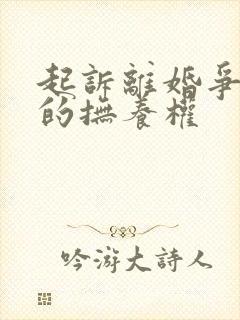 起訴離婚爭
的撫養權
吟游大詩人